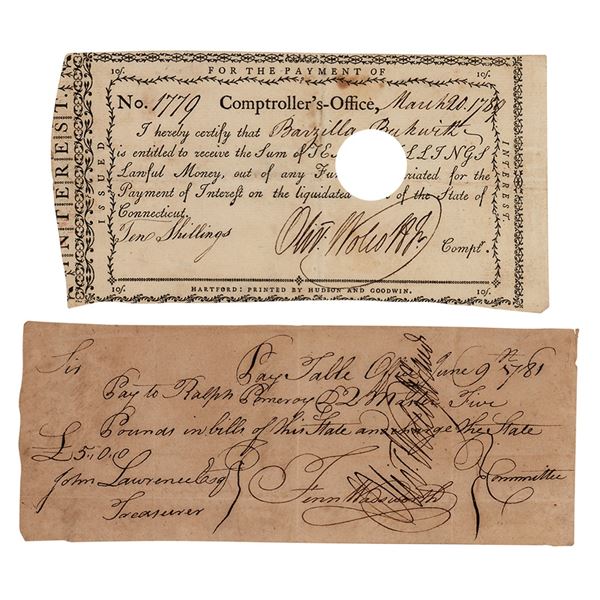 10/. FOR THE PAYMENT OF 10/.
No. 1779 Comptroller's-Office, March 20. 1789
I hereby certify that Barzilla Beckwith
is entitled to receive the Sum of TE LLINGS
Lawful Money, out of any Fu riated for the
Payment of Interest on the liquidated of the State of
Connecticut.
Ten Shillings Olivr. Wolcott Jr. Comptr.
10/. HARTFORD: PRINTED BY HUDSON AND GOODWIN. 10/.
INTEREST.
ISSUED
INTEREST.
Sir Pay Table Office June 9th 1781
Pay to Ralph Pomeroy Q Master Five
Pounds in bills of this State and charge the State
£5.0.0
John Lawrence Esqr Fenn Wadsworth Committee
Treasurer